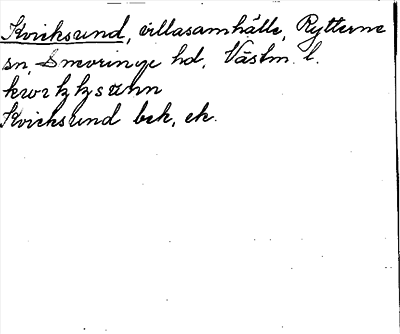 Kvicksund, villasamhälle, Rytterne
sn, Snevringe hd, Västm. l.
Kvicksund bek, ek.